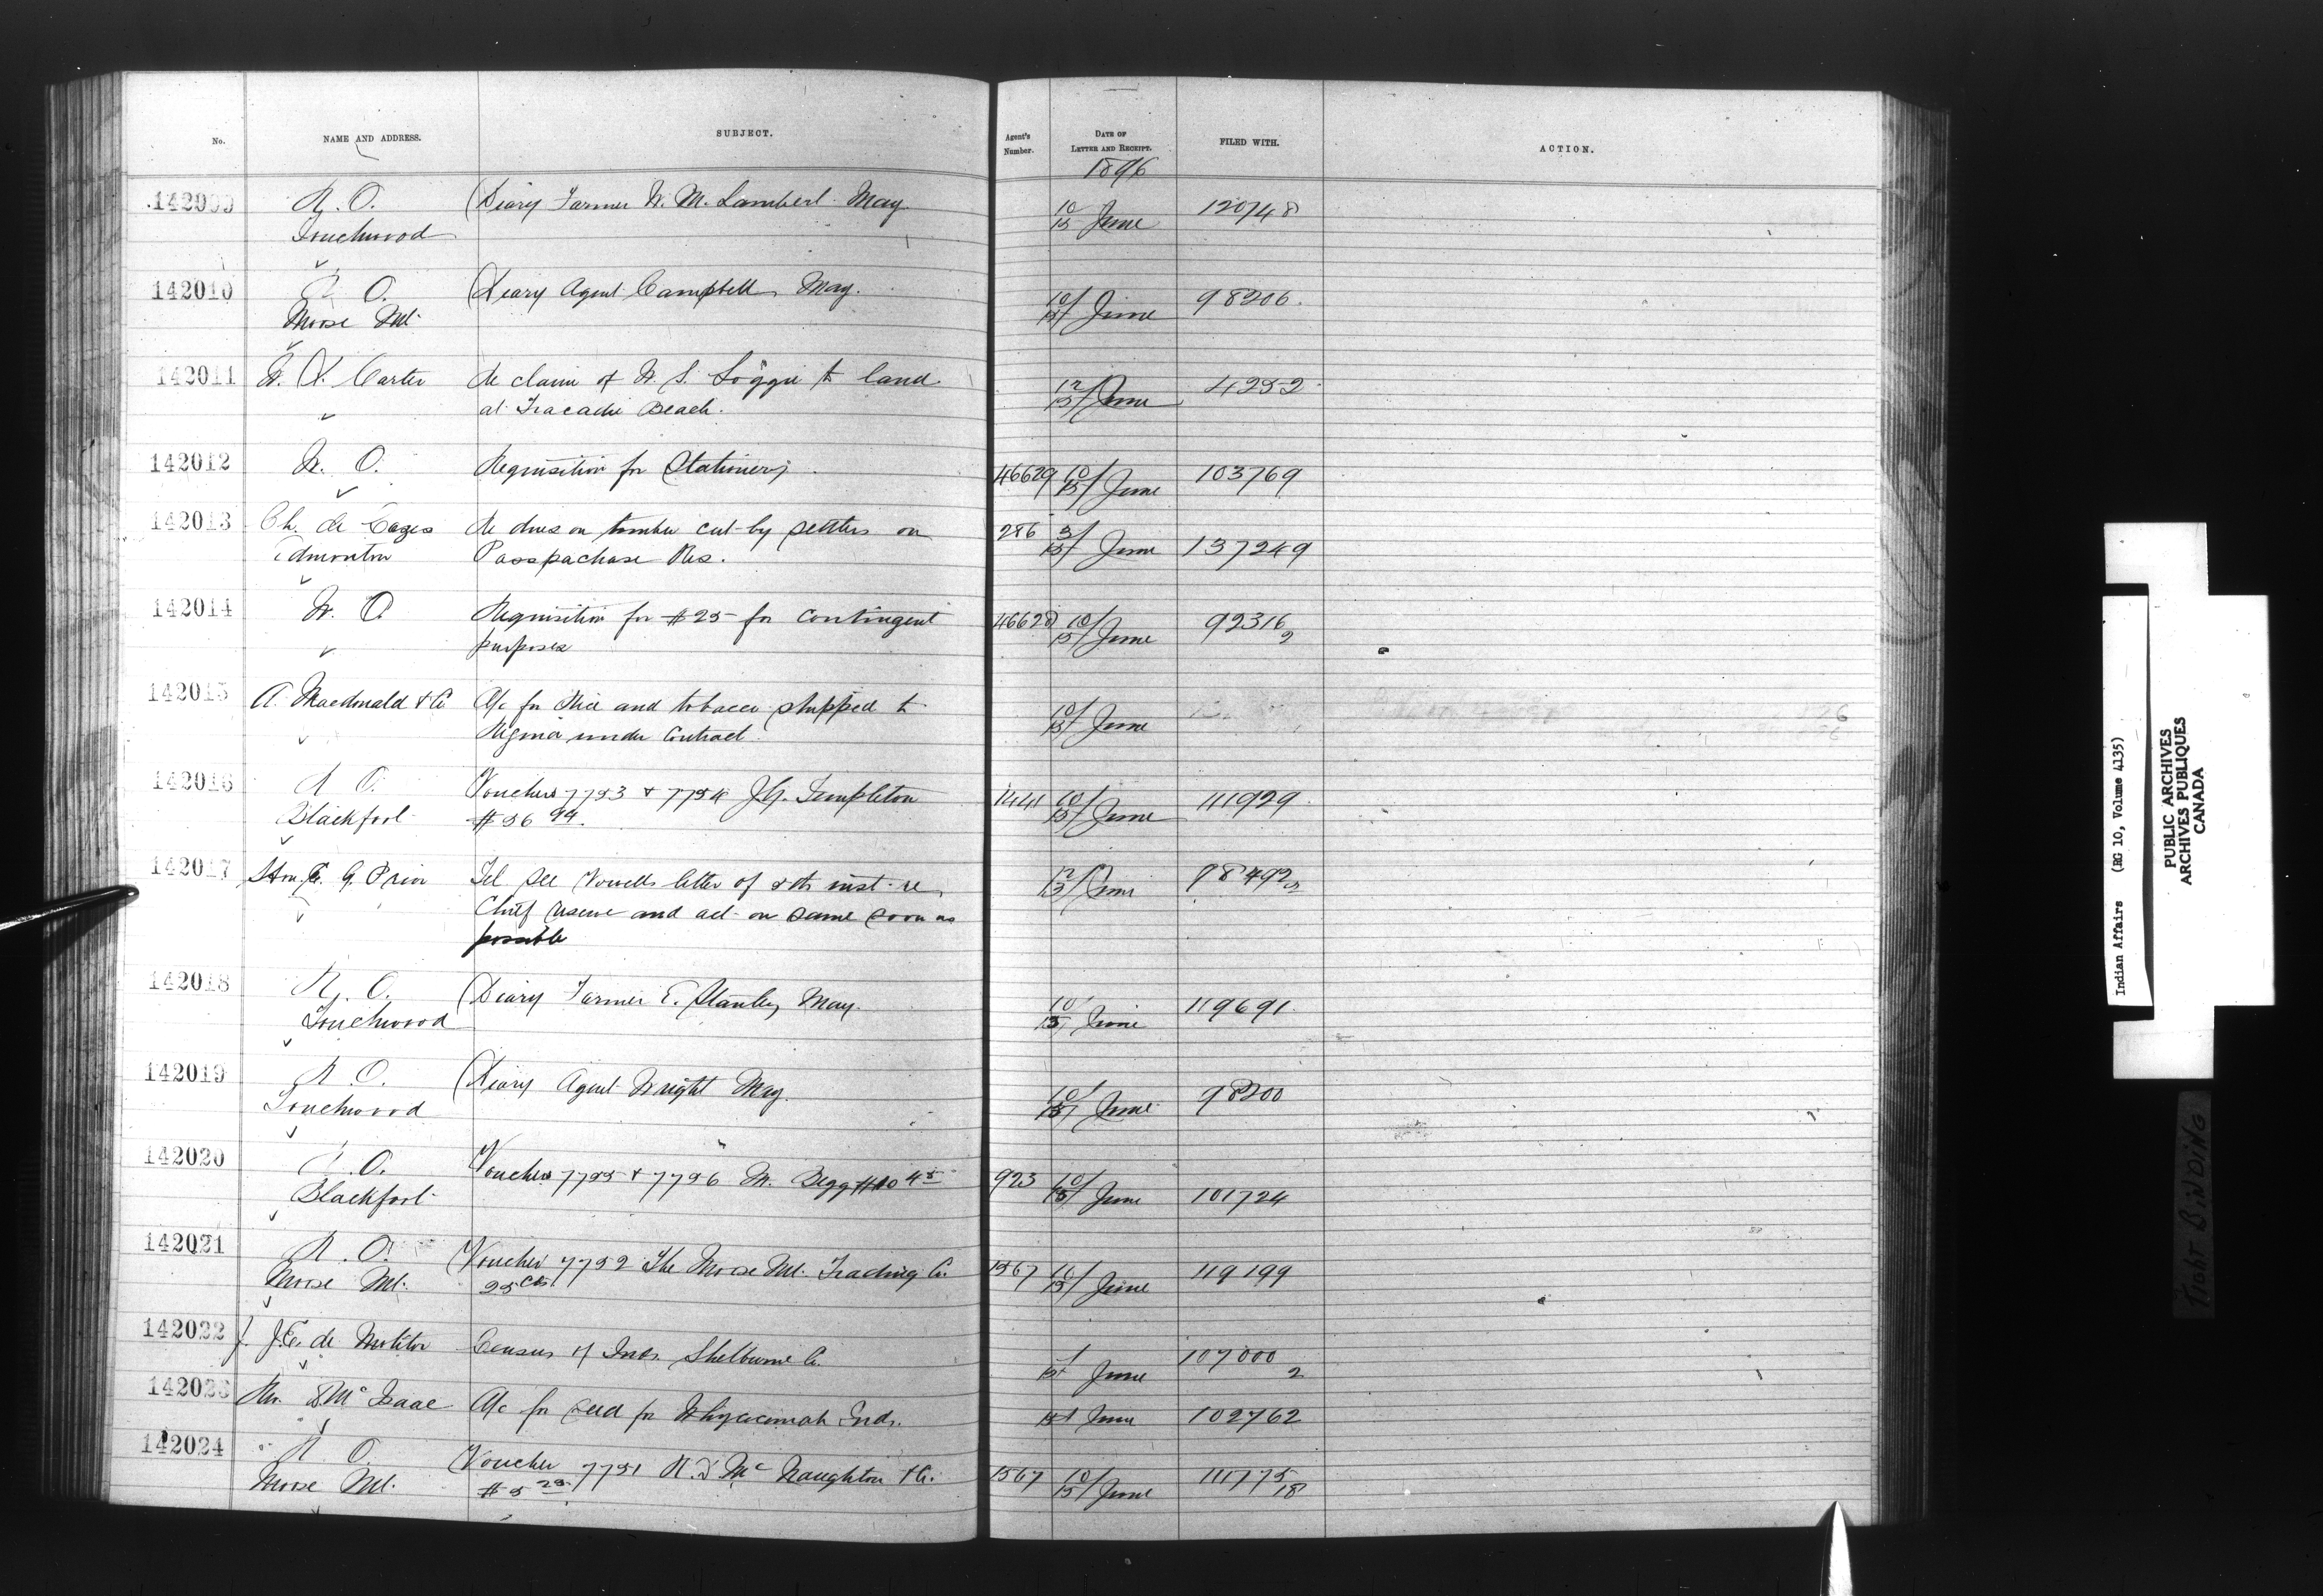 No. NAME AND ADDRESS. SUBJECT. Agent's Number. DATE OF LETTER AND RECEIPT. FILED WITH. ACTION.
1896
R. O. Diary Farmer W. M. Lambert May 10/15 June 120748
Touchwood
142010 R. O. Diary Agent Campbell, May. 10/15 June 98206.
Moose Mt.
142011 Carter Re claim of W. S. Loggie to land 12/15 June 4252
at Tracadie Beach.
142012 W. O. Requisition for Stationery 46629 10/15 June 103769
142013 Ch. de Cazes Re dues on timber cut by settlers on 286 3/15 June 137249
Edmonton Passpachase Res.
142014 W. O. Requisition for $25 for contingent 46628 10/15 June 92316
purposes 2
142015 A. Macdonald & Co A/c for Rice and tobacco shipped to 10/15 June
Regina under Contract.
142016 R. O. Vouchers 7753 & 7754 J.G. Templeton 1441 10/15 June 111929
Blackfoot $56 94.
142017 Hon. E. G. Prior Tel see Vowells letter of inst. re 12/13 June 98492
Chief reserve and act on same soon as
possible
142018 R. O. Diary Farmer E. Stanley May. 10/15 June 119691.
Touchwood
142019 R. O. Diary Agent Wright May. 10/15 June 98200
Touchwood
142020 R. O. Vouchers 7755 & 7756 M. Begg $10 45 923 10/15 June 101724
Blackfoot
142021 R. O. Voucher 7752 The Moose Mt. Trading Co. 1567 10/15 June 119199
Moose Mt. 25 cts.
142022 J. J.E. de Molitor Census of Inds. Shelburne Co. June 107000
2
142023 Rev. D. McIsaac A/c for seed for Whycocomah Inds. June 102762
142024 R. O. Voucher 7751 R. D McNaughton & Co. 1567 10/15 June 111775
Moose Mt. $5 25 18
Indian Affairs (RG 10, Volume 4135)
PUBLIC ARCHIVES
ARCHIVES PUBLIQUES
CANADA
TIGHT BINDING